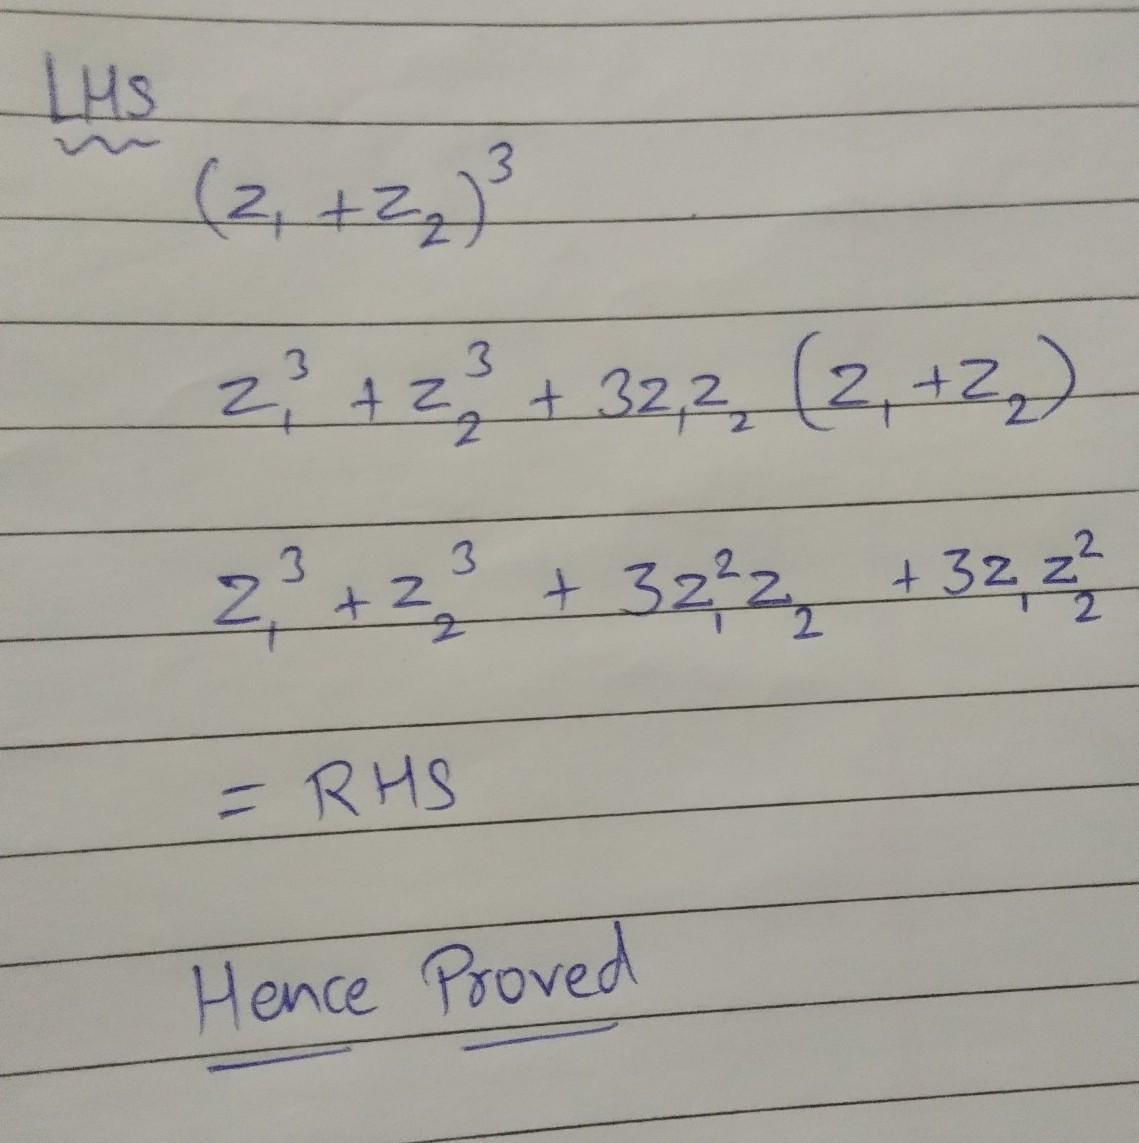 LHS
(z₁ + z₂)³
z₁³ + z₂³ + 3z₁z₂ (z₁ + z₂)
z₁³ + z₂³ + 3z₁²z₂ + 3z₁z₂²
= RHS
Hence Proved